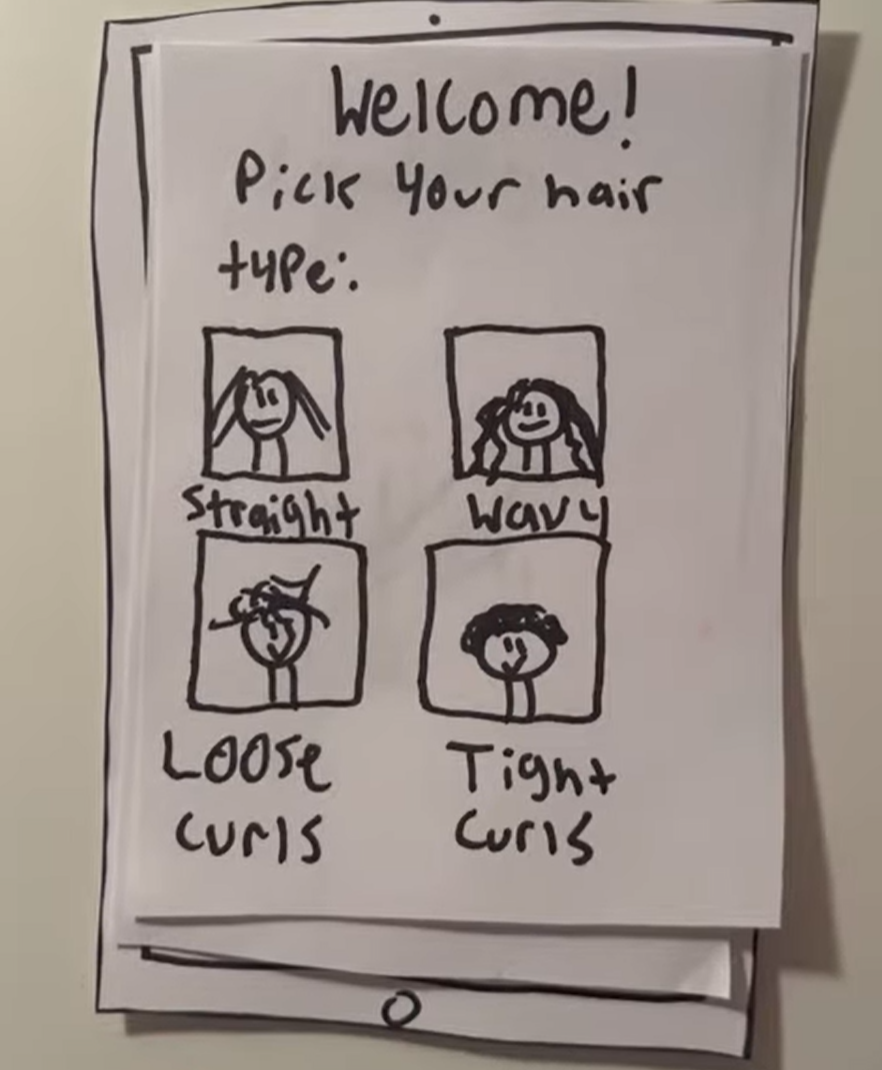 Welcome!
Pick your hair
type:
Straight
Wavy
Loose
curls
Tight
curls